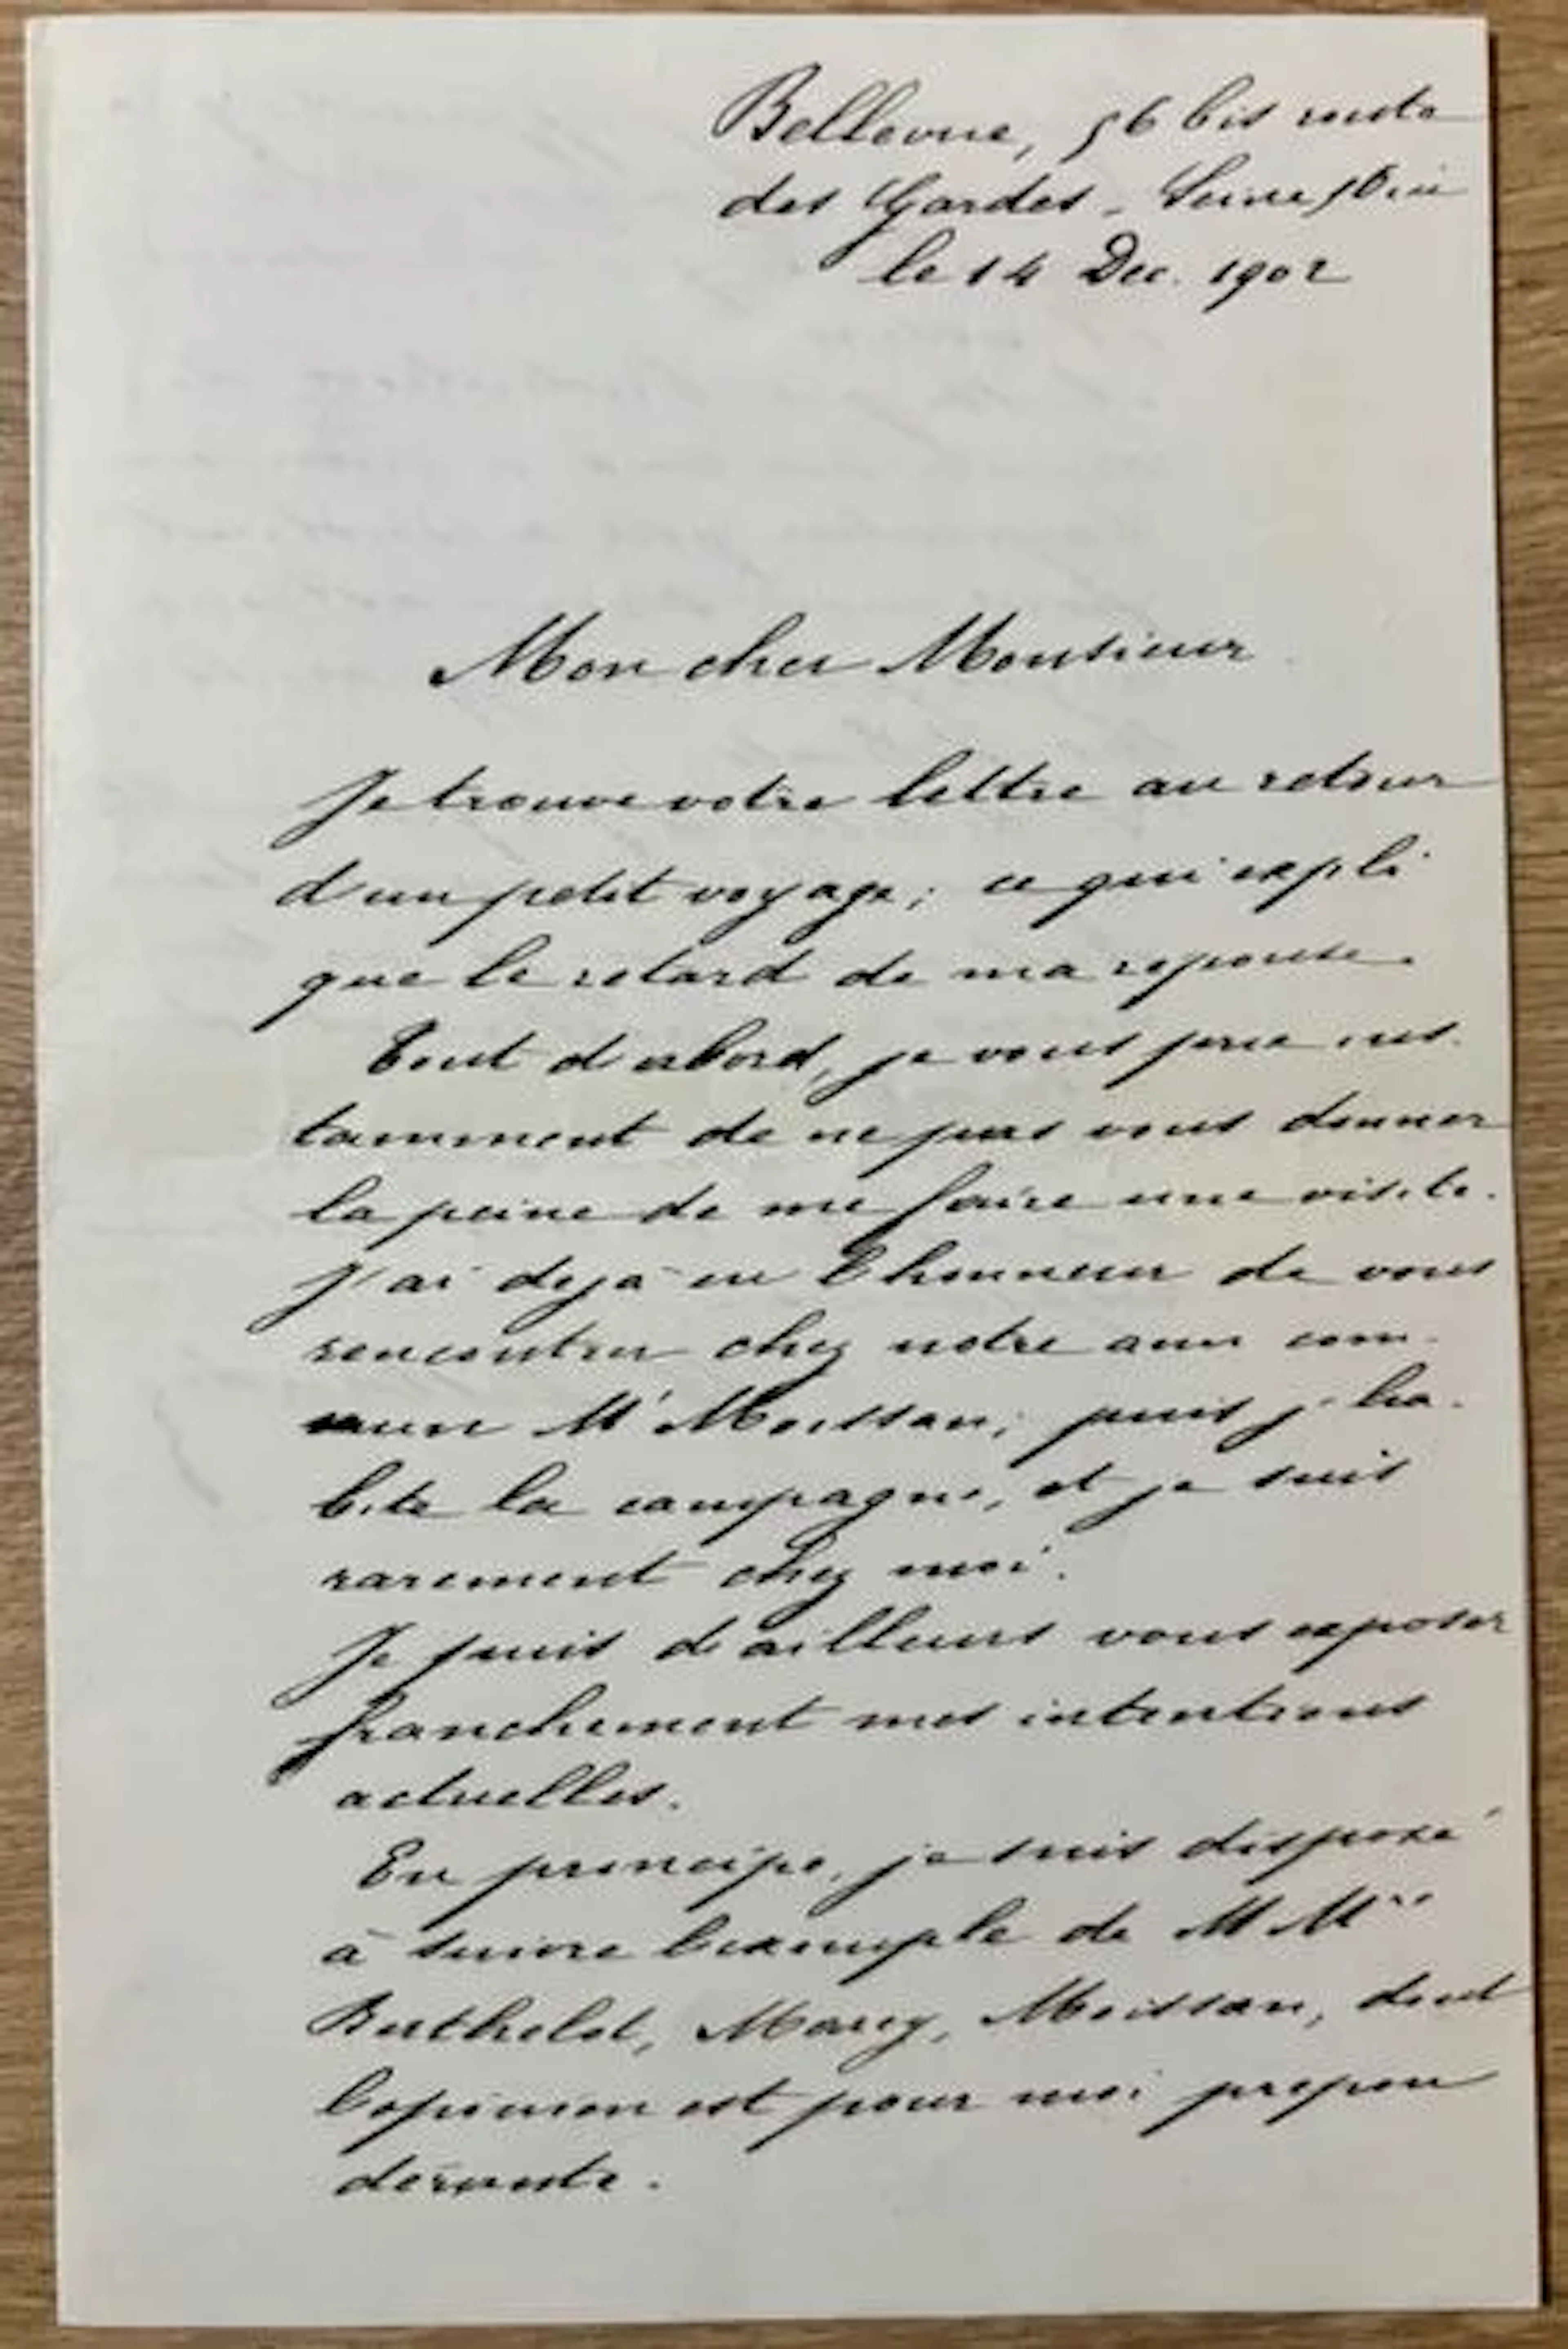 Bellevue, 56 bis route
des Gardes - Seine & Oise
le 14 Dec. 1902
Mon cher Monsieur
Je trouve votre lettre au retour
d'un petit voyage; ce qui expli
que le retard de ma reponse.
Tout d'abord, je vous prie ins-
tamment de ne pas vous donner
la peine de me faire une visite.
J'ai dejà eu l'honneur de vous
rencontrer chez notre ami com-
mun Mr Moissan; puis j'ha-
bite la campagne, et je suis
rarement chez moi.
Je puis d'ailleurs vous exposer
franchement mes intentions
actuelles.
En principe, je suis disposé
à suivre l'exemple de MMrs
Berthelot, Marey, Moissan, dont
l'opinion est pour moi prepon
dérante.